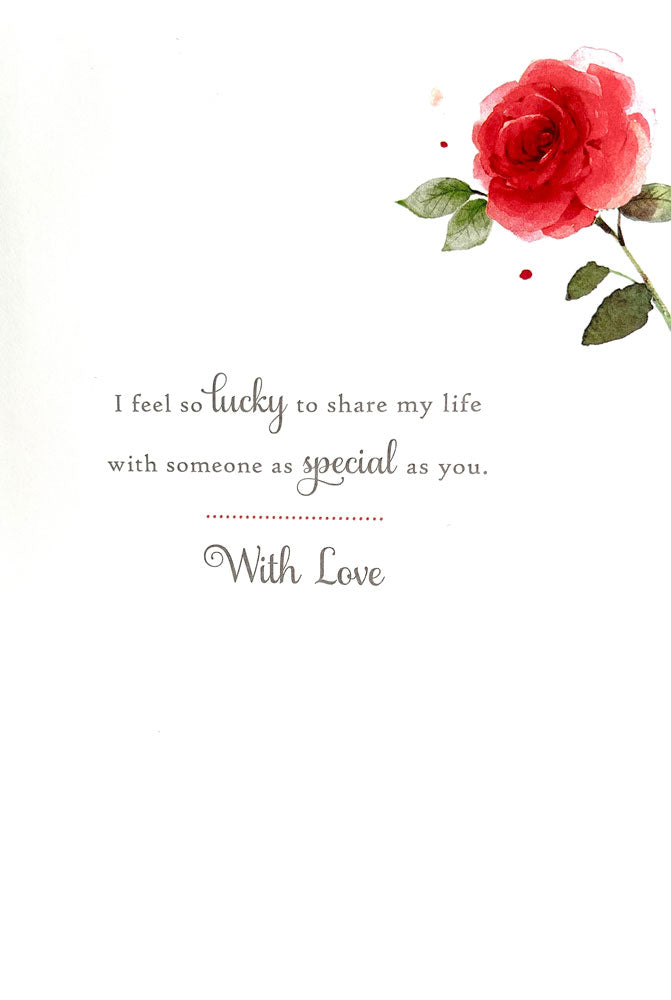 I feel so lucky to share my life
with someone as special as you.
With Love